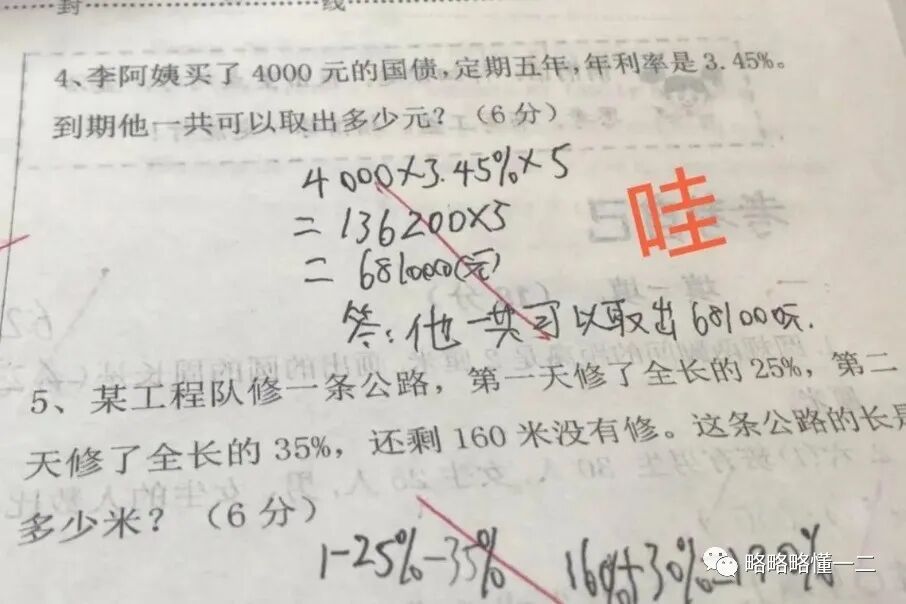 封 线
4、李阿姨买了4000元的国债,定期五年,年利率是3.45%。
到期他一共可以取出多少元?(6分)
4000×3.45%×5
=136200×5
=681000(元)
哇
答:他一共可以取出681000元.
5、某工程队修一条公路,第一天修了全长的25%,第二
天修了全长的35%,还剩160米没有修。这条公路的长是
多少米?(6分)
1-25%-35%
略略略懂一二